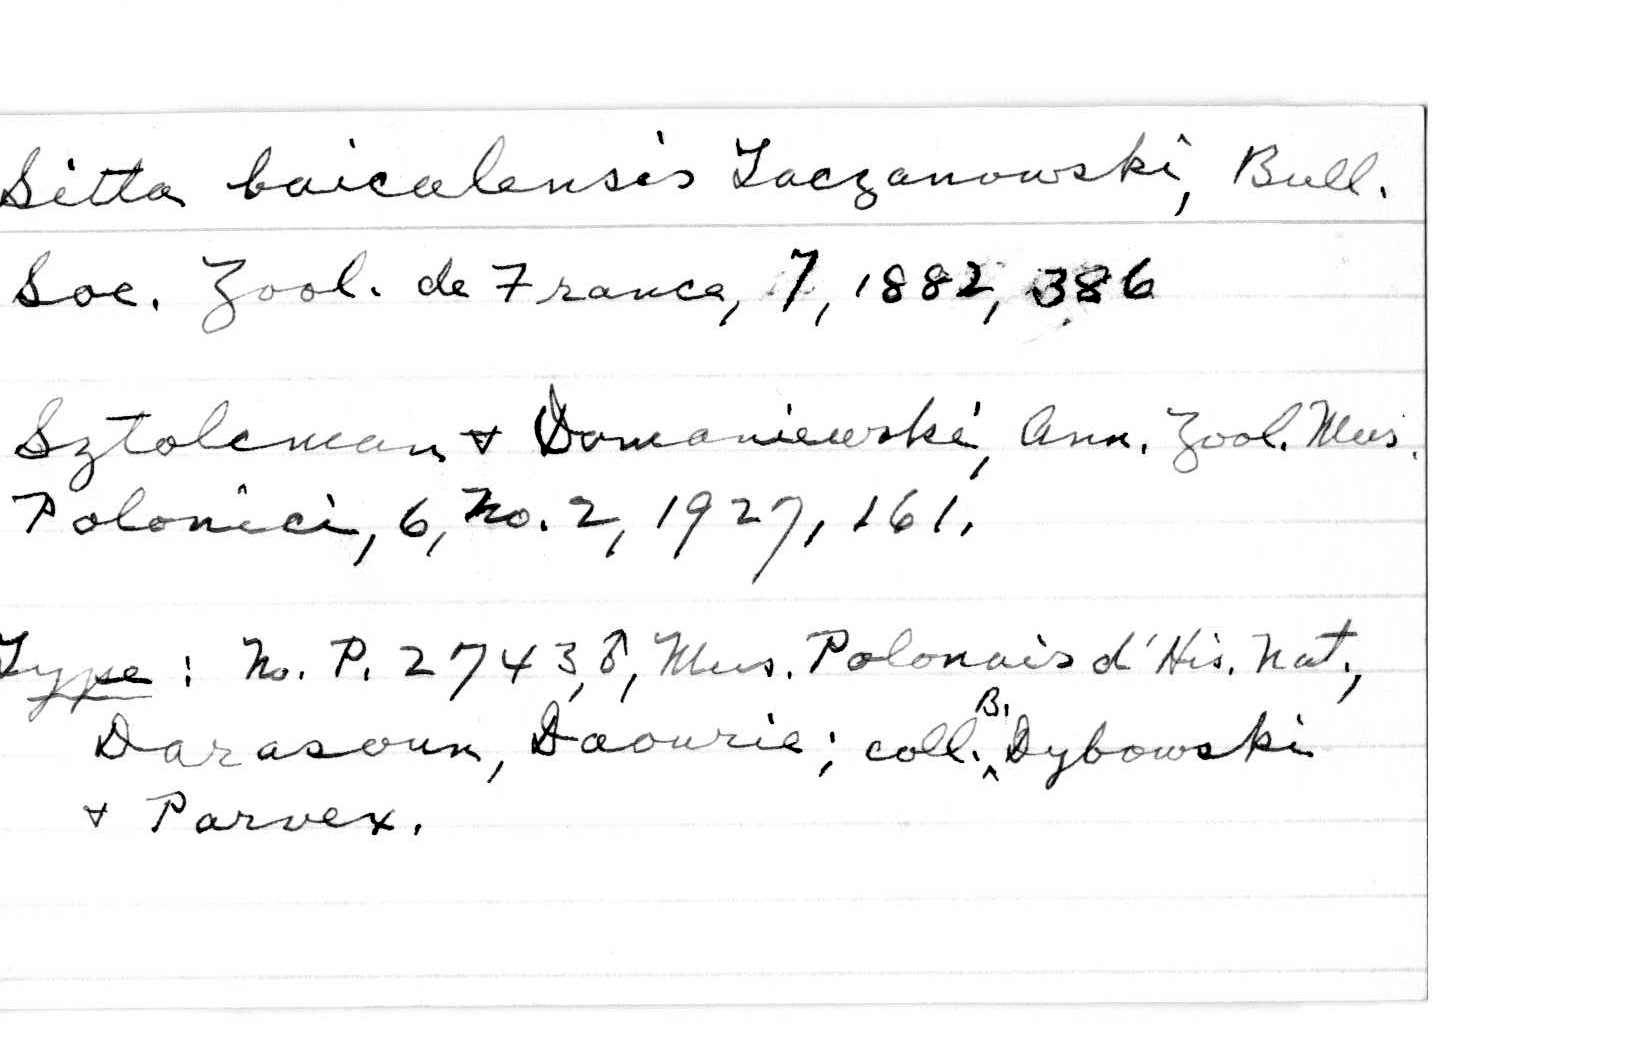 Sitta baicalensis Taczanowski, Bull.
Soc. Zool. de France, 7, 1882, 386
Sztolcman & Domaniewski, Ann. Zool. Mus.
Polonici, 6, No. 2, 1927, 161.
Type: No. P. 2743, ♂, Mus. Polonais d'His. Nat.,
Darasoun, Daourie; coll. B. Dybowski
& Parvex.